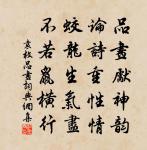 品畫獻神韵
論詩重性情
蛟龍生氣盡
不若鼠橫行
袁枚品畫詞典網集